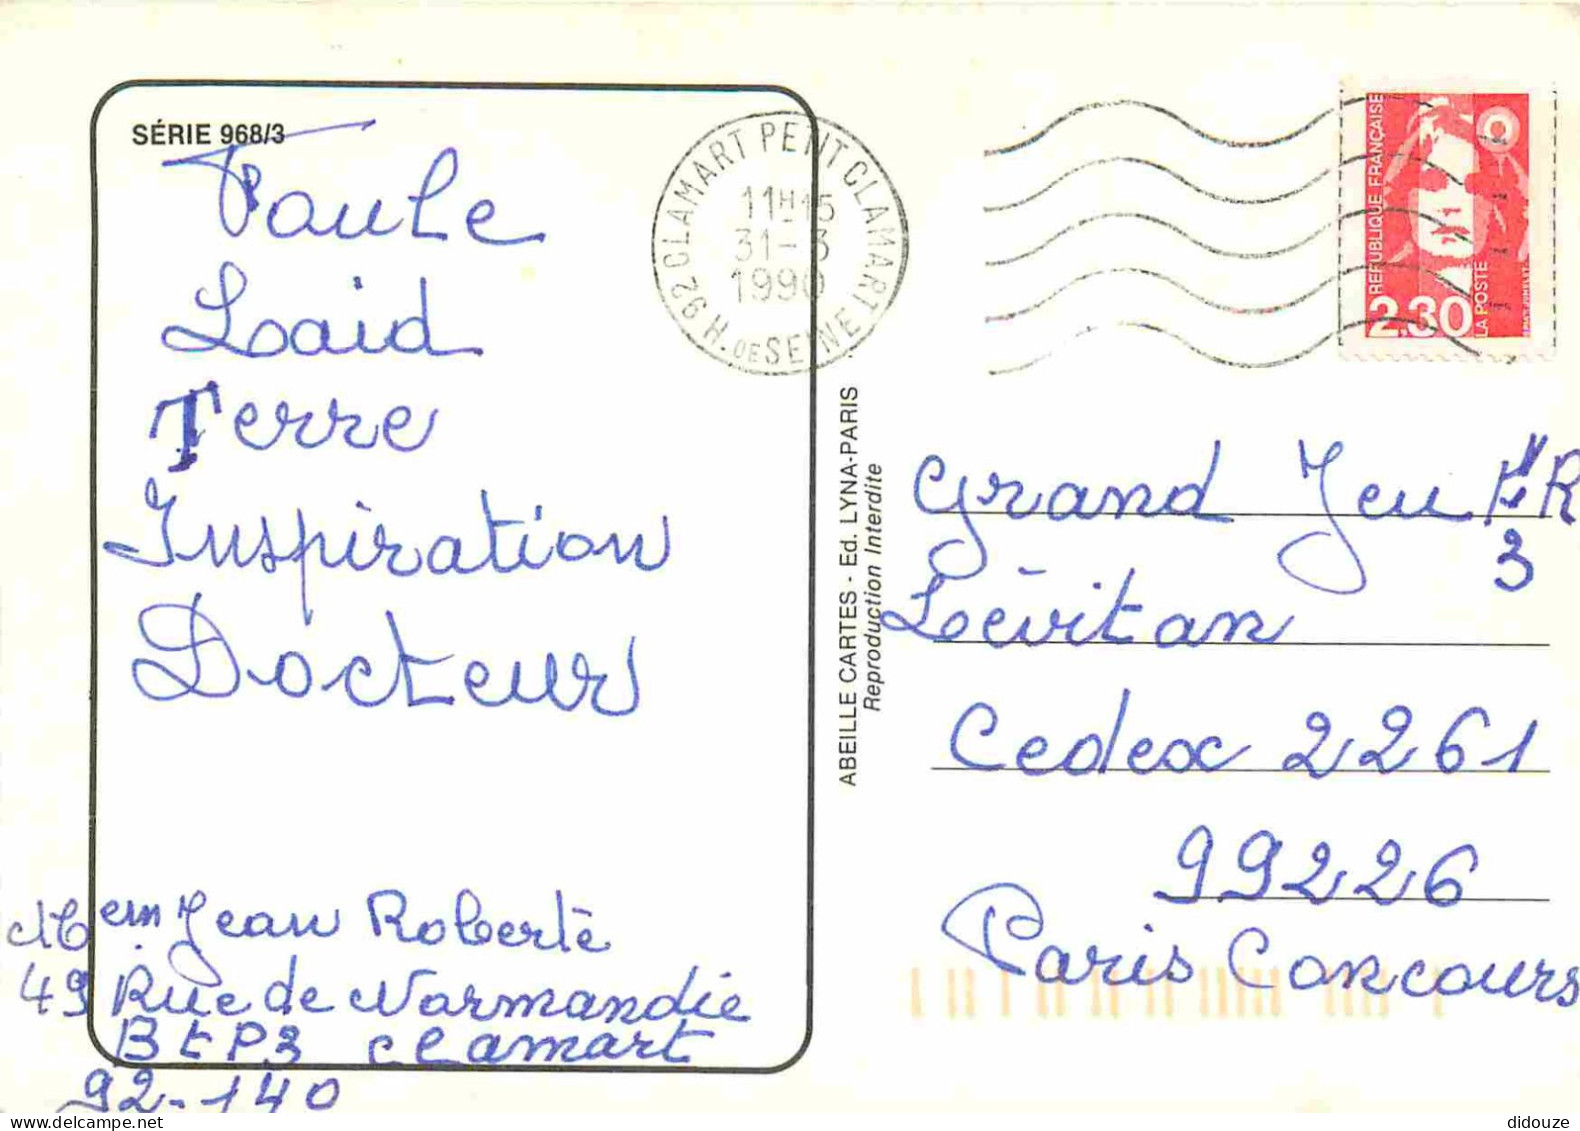 SÉRIE 968/3
Poule
Laid
Terre
Inspiration
Docteur
Jean Roberte
49 Rue de Normandie
Bt P3 clamart
92-140
92 CLAMART PETIT CLAMART
11H15
31-3
1990
H. DE SEINE
REPUBLIQUE FRANÇAISE
2,30
LA POSTE
ABEILLE CARTES - Ed. LYNA-PARIS
Reproduction Interdite
Grand Jeu FR
3
Lévitan
Cedex 2261
99226
Paris Concours
didouze